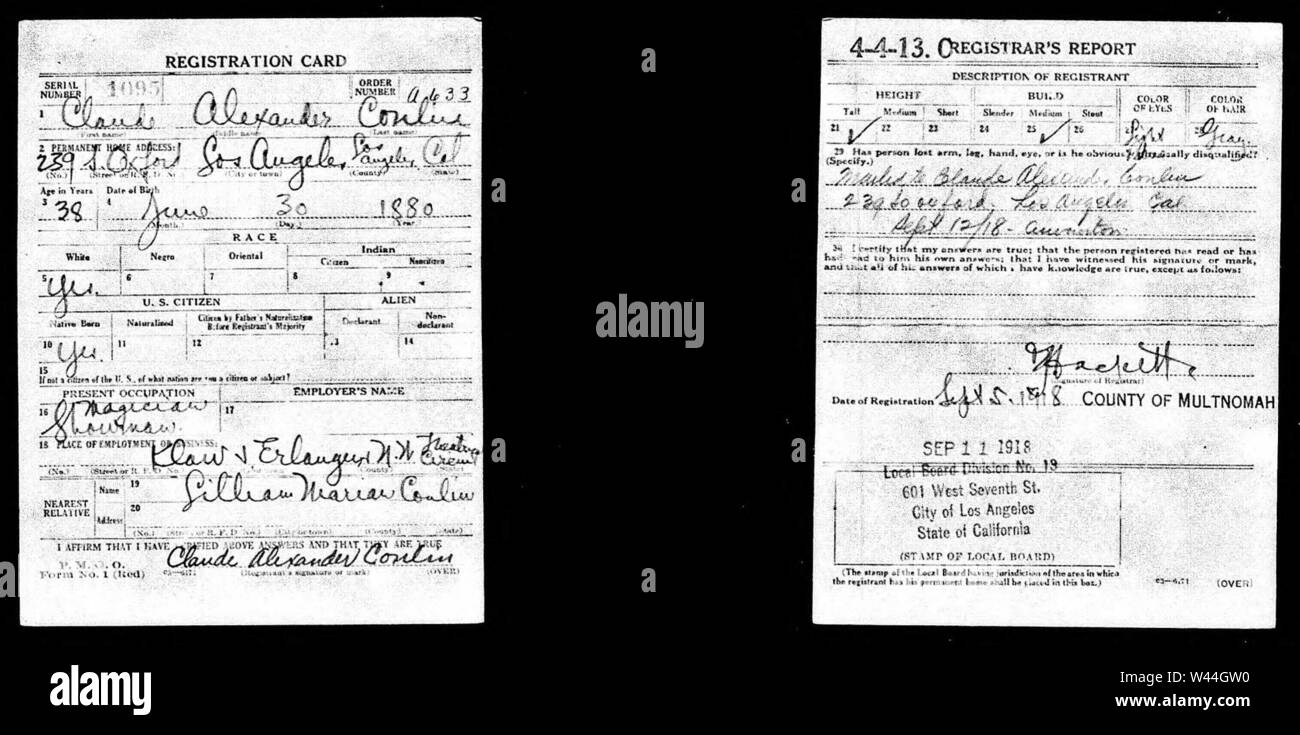 REGISTRATION CARD
SERIAL NUMBER 1095 ORDER NUMBER A633
1 Claude Alexander Conlin
(First name) (Middle name) (Last name)
2 PERMANENT HOME ADDRESS:
239 S. Oxford Los Angeles Los Angeles Cal
(No.) (Street or R. F. D. No.) (City or town) (County) (State)
Age in Years Date of Birth
3 38 4 June 30 1880
(Month.) (Day.) (Year.)
RACE
White Negro Oriental Indian
Citizen Noncitizen
5 Yes. 6 7 8 9
U. S. CITIZEN ALIEN
Native Born Naturalized Citizen by Father's Naturalization Before Registrant's Majority Declarant Non-declarant
10 Yes. 11 12 13 14
15
If not a citizen of the U. S., of what nation are you a citizen or subject?
PRESENT OCCUPATION EMPLOYER'S NAME
16 Magician Showman. 17
18 PLACE OF EMPLOYMENT OR BUSINESS:
Klaw & Erlanger N.W. Theatre Circuit
(No.) (Street or R. F. D. No.) (City or town) (County) (State)
NEAREST RELATIVE
Name 19 Lillian Marian Conlin
Address 20
(No.) (Street or R. F. D. No.) (City or town) (County) (State)
I AFFIRM THAT I HAVE VERIFIED ABOVE ANSWERS AND THAT THEY ARE TRUE
P. M. G. O.
Form No. 1 (Red) 03—6171 Claude Alexander Conlin
(Registrant's signature or mark) (OVER)
4-4-13. C REGISTRAR'S REPORT
DESCRIPTION OF REGISTRANT
HEIGHT BUILD COLOR OF EYES COLOR OF HAIR
Tall Medium Short Slender Medium Stout
21 ✓ 22 23 24 25 ✓ 26 27 Light 28 Gray
29 Has person lost arm, leg, hand, eye, or is he obviously physically disqualified?
(Specify.)
Mailed to Claude Alexand. Conlin
239 So oxford. Los Angeles Cal
Sept 12/18.
30 I certify that my answers are true; that the person registered has read or has
had read to him his own answers; that I have witnessed his signature or mark,
and that all of his answers of which I have knowledge are true, except as follows:
Hackett.
(Signature of Registrar)
Date of Registration Sept 5. 1918 COUNTY OF MULTNOMAH
SEP 11 1918
Local Board Division No. 19
601 West Seventh St.
City of Los Angeles
State of California
(STAMP OF LOCAL BOARD)
(The stamp of the Local Board having jurisdiction of the area in which
the registrant has his permanent home shall be placed in this box.)
03—6171 (OVER)
a
alamy stock photo
alamy
Image ID: W44GW0
www.alamy.com